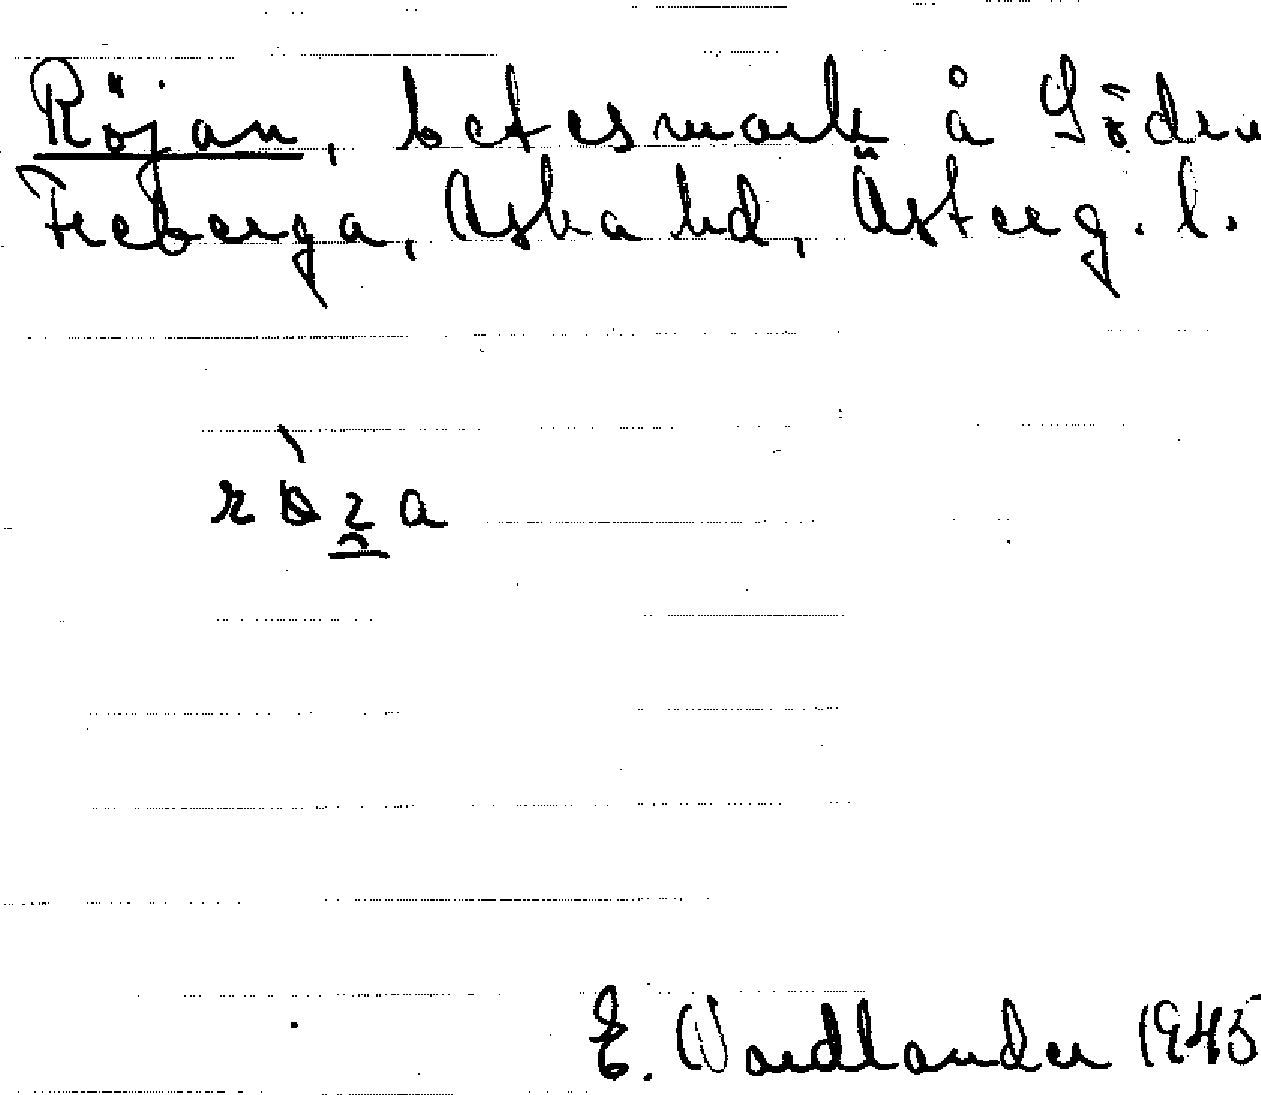 Röjan, betesmark å Södra
Freberga, Aska hd, Österg. l.
E. Nordlander 1945